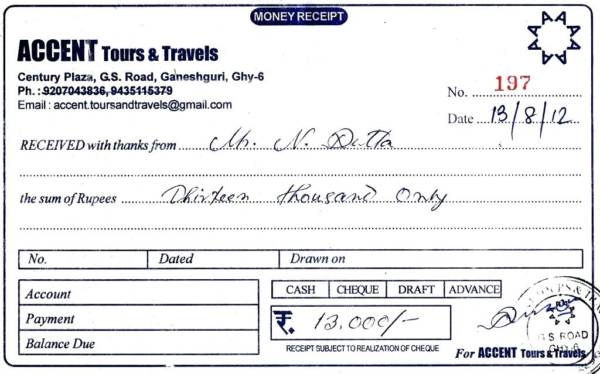 MONEY RECEIPT
ACCENT Tours & Travels
Century Plaza, G.S. Road, Ganeshguri, Ghy-6
Ph.: 9207043836, 9435115379
Email: accent.toursandtravels@gmail.com
No. 197
Date 13/8/12
RECEIVED with thanks from Mr. N. Dutta
the sum of Rupees Thirteen thousand Only
No. Dated Drawn on
Account
Payment
Balance Due
CASH CHEQUE DRAFT ADVANCE
₹. 13,000/-
RECEIPT SUBJECT TO REALIZATION OF CHEQUE
G.S. ROAD
GHY-6
For ACCENT Tours & Travels